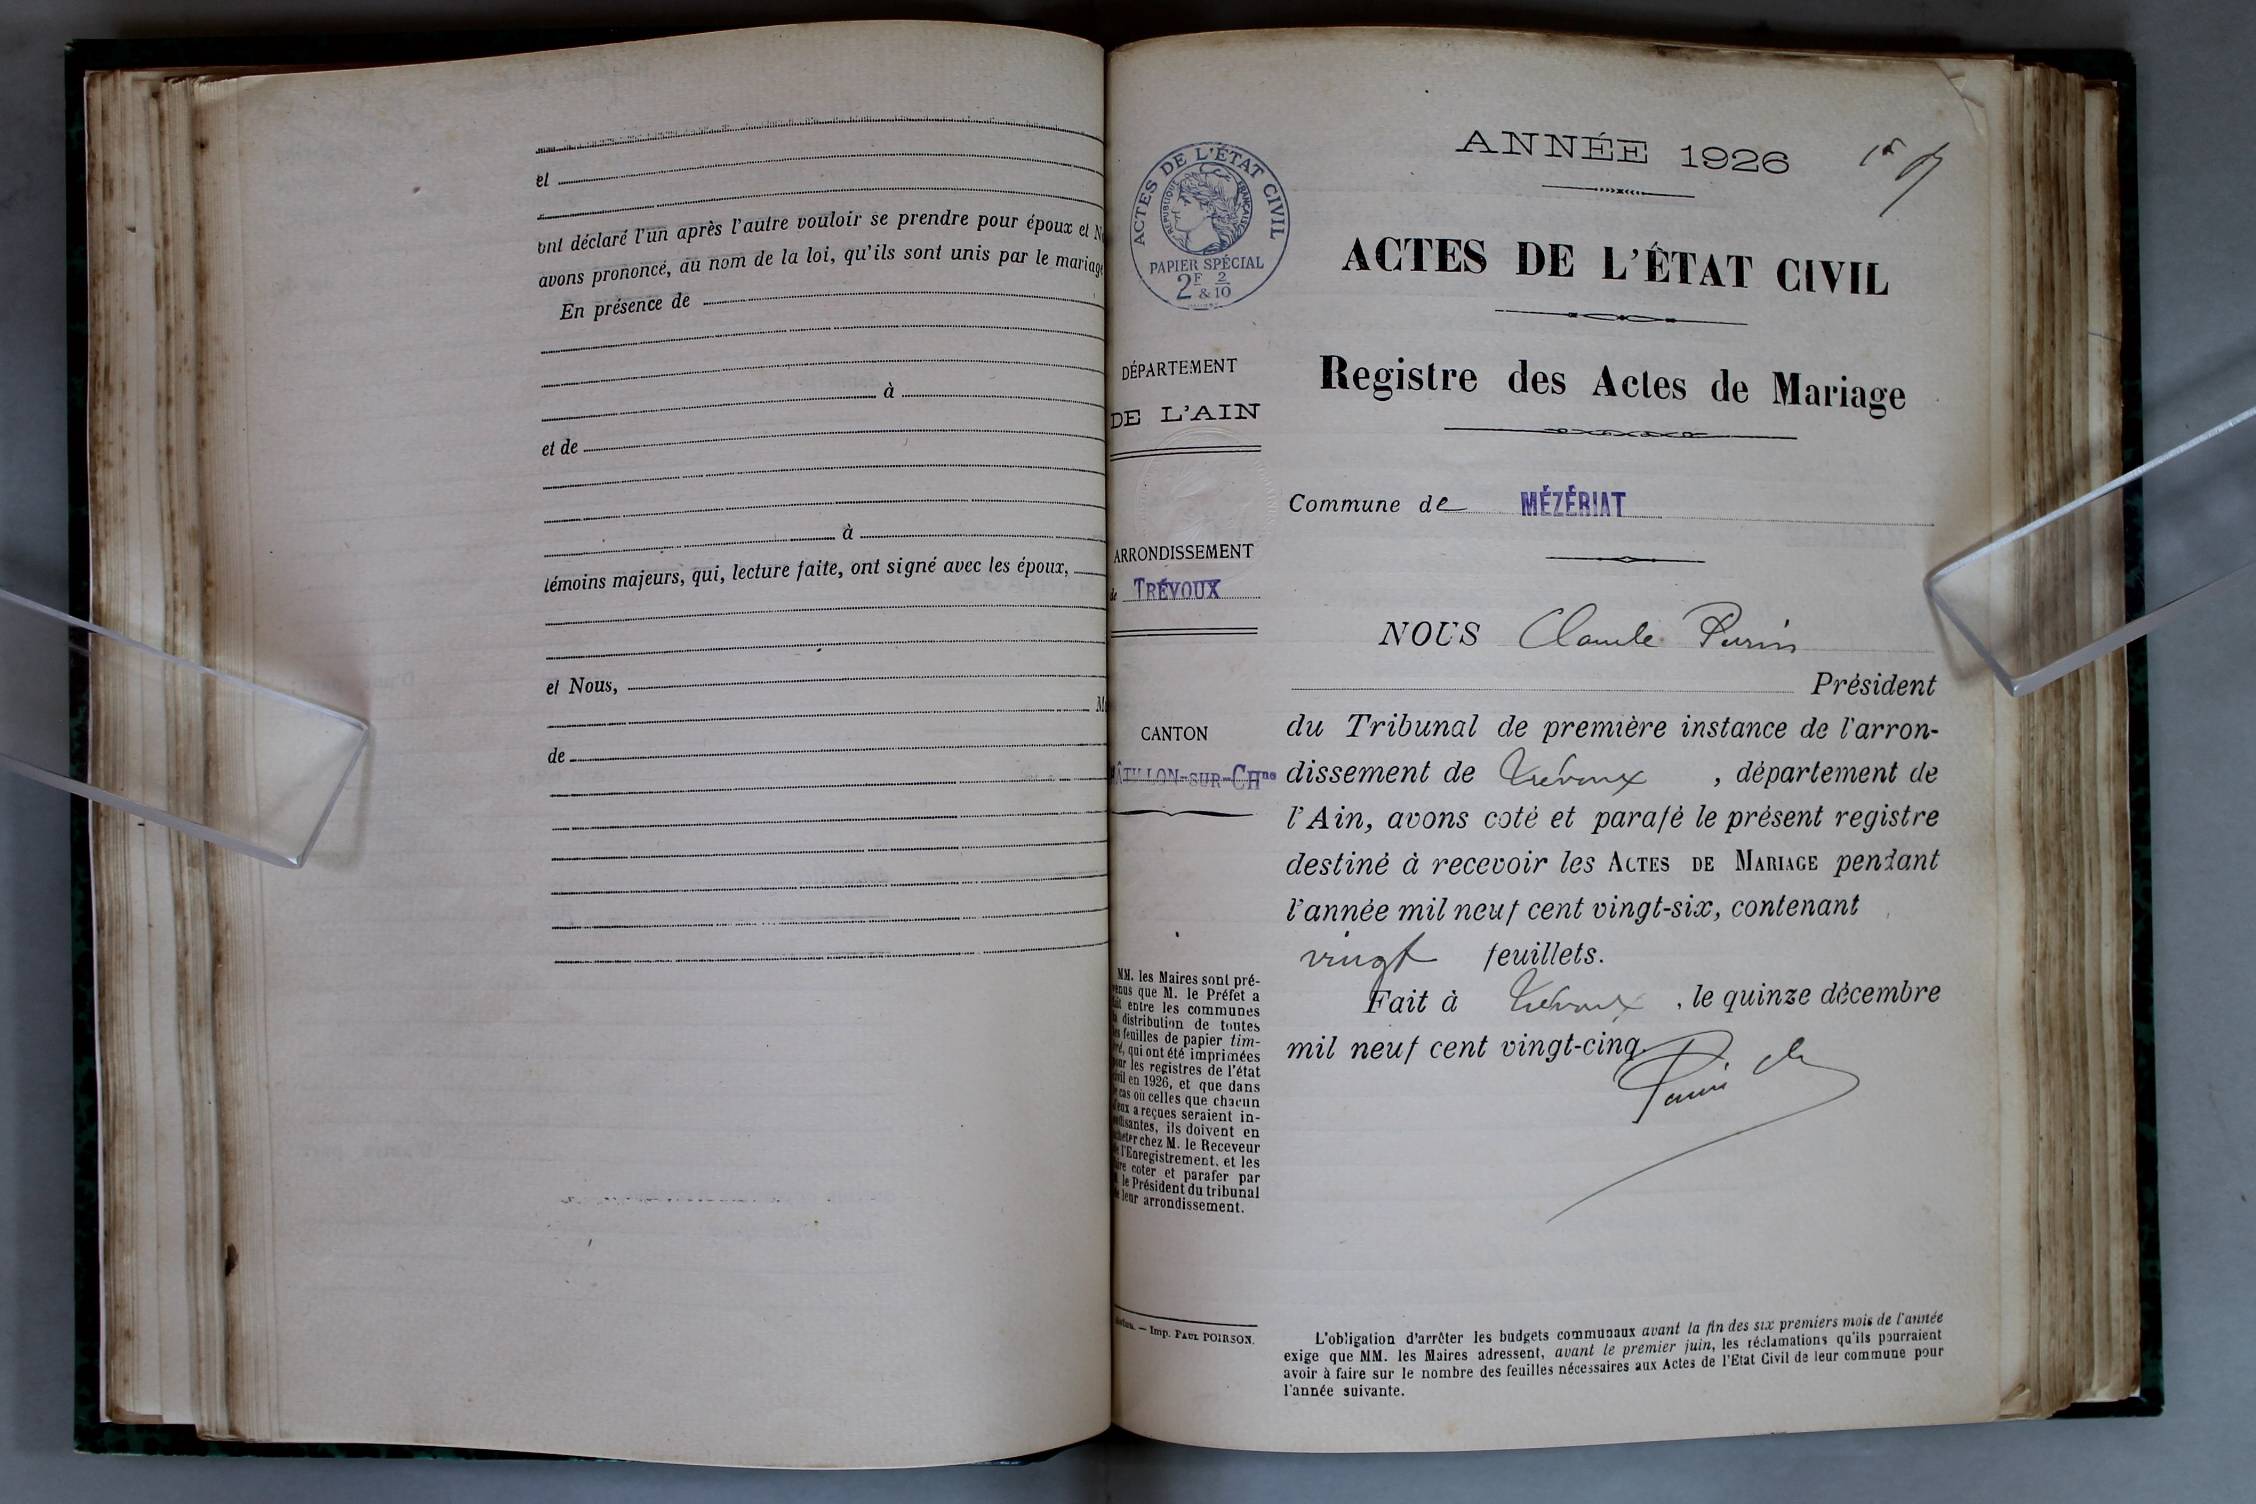 et
ont déclaré l'un après l'autre vouloir se prendre pour époux et
avons prononcé, au nom de la loi, qu'ils sont unis par le mariage
En présence de
à
et de
à
témoins majeurs, qui, lecture faite, ont signé avec les époux,
et Nous,
de
ACTES DE L'ÉTAT CIVIL
RÉPUBLIQUE FRANÇAISE
PAPIER SPÉCIAL
2F & 2/10
DÉPARTEMENT
DE L'AIN
ARRONDISSEMENT
de TRÉVOUX
CANTON
CHÂTILLON-SUR-CHne
MM. les Maires sont pré-
venus que M. le Préfet a
fait entre les communes
la distribution de toutes
les feuilles de papier tim-
bré, qui ont été imprimées
pour les registres de l'état
civil en 1926, et que dans
le cas où celles que chacun
d'eux a reçues seraient in-
suffisantes, ils doivent en
acheter chez M. le Receveur
de l'Enregistrement, et les
faire coter et parafer par
M. le Président du tribunal
de leur arrondissement.
— Imp. PAUL POIRSON.
ANNÉE 1926
ACTES DE L'ÉTAT CIVIL
Registre des Actes de Mariage
Commune de MÉZÉRIAT
NOUS Claude Perrin
Président
du Tribunal de première instance de l'arron-
dissement de Trévoux, département de
l'Ain, avons coté et parafé le présent registre
destiné à recevoir les ACTES DE MARIAGE pendant
l'année mil neuf cent vingt-six, contenant
vingt feuillets.
Fait à Trévoux, le quinze décembre
mil neuf cent vingt-cinq.
L'obligation d'arrêter les budgets communaux avant la fin des six premiers mois de l'année
exige que MM. les Maires adressent, avant le premier juin, les réclamations qu'ils pourraient
avoir à faire sur le nombre des feuilles nécessaires aux Actes de l'Etat Civil de leur commune pour
l'année suivante.